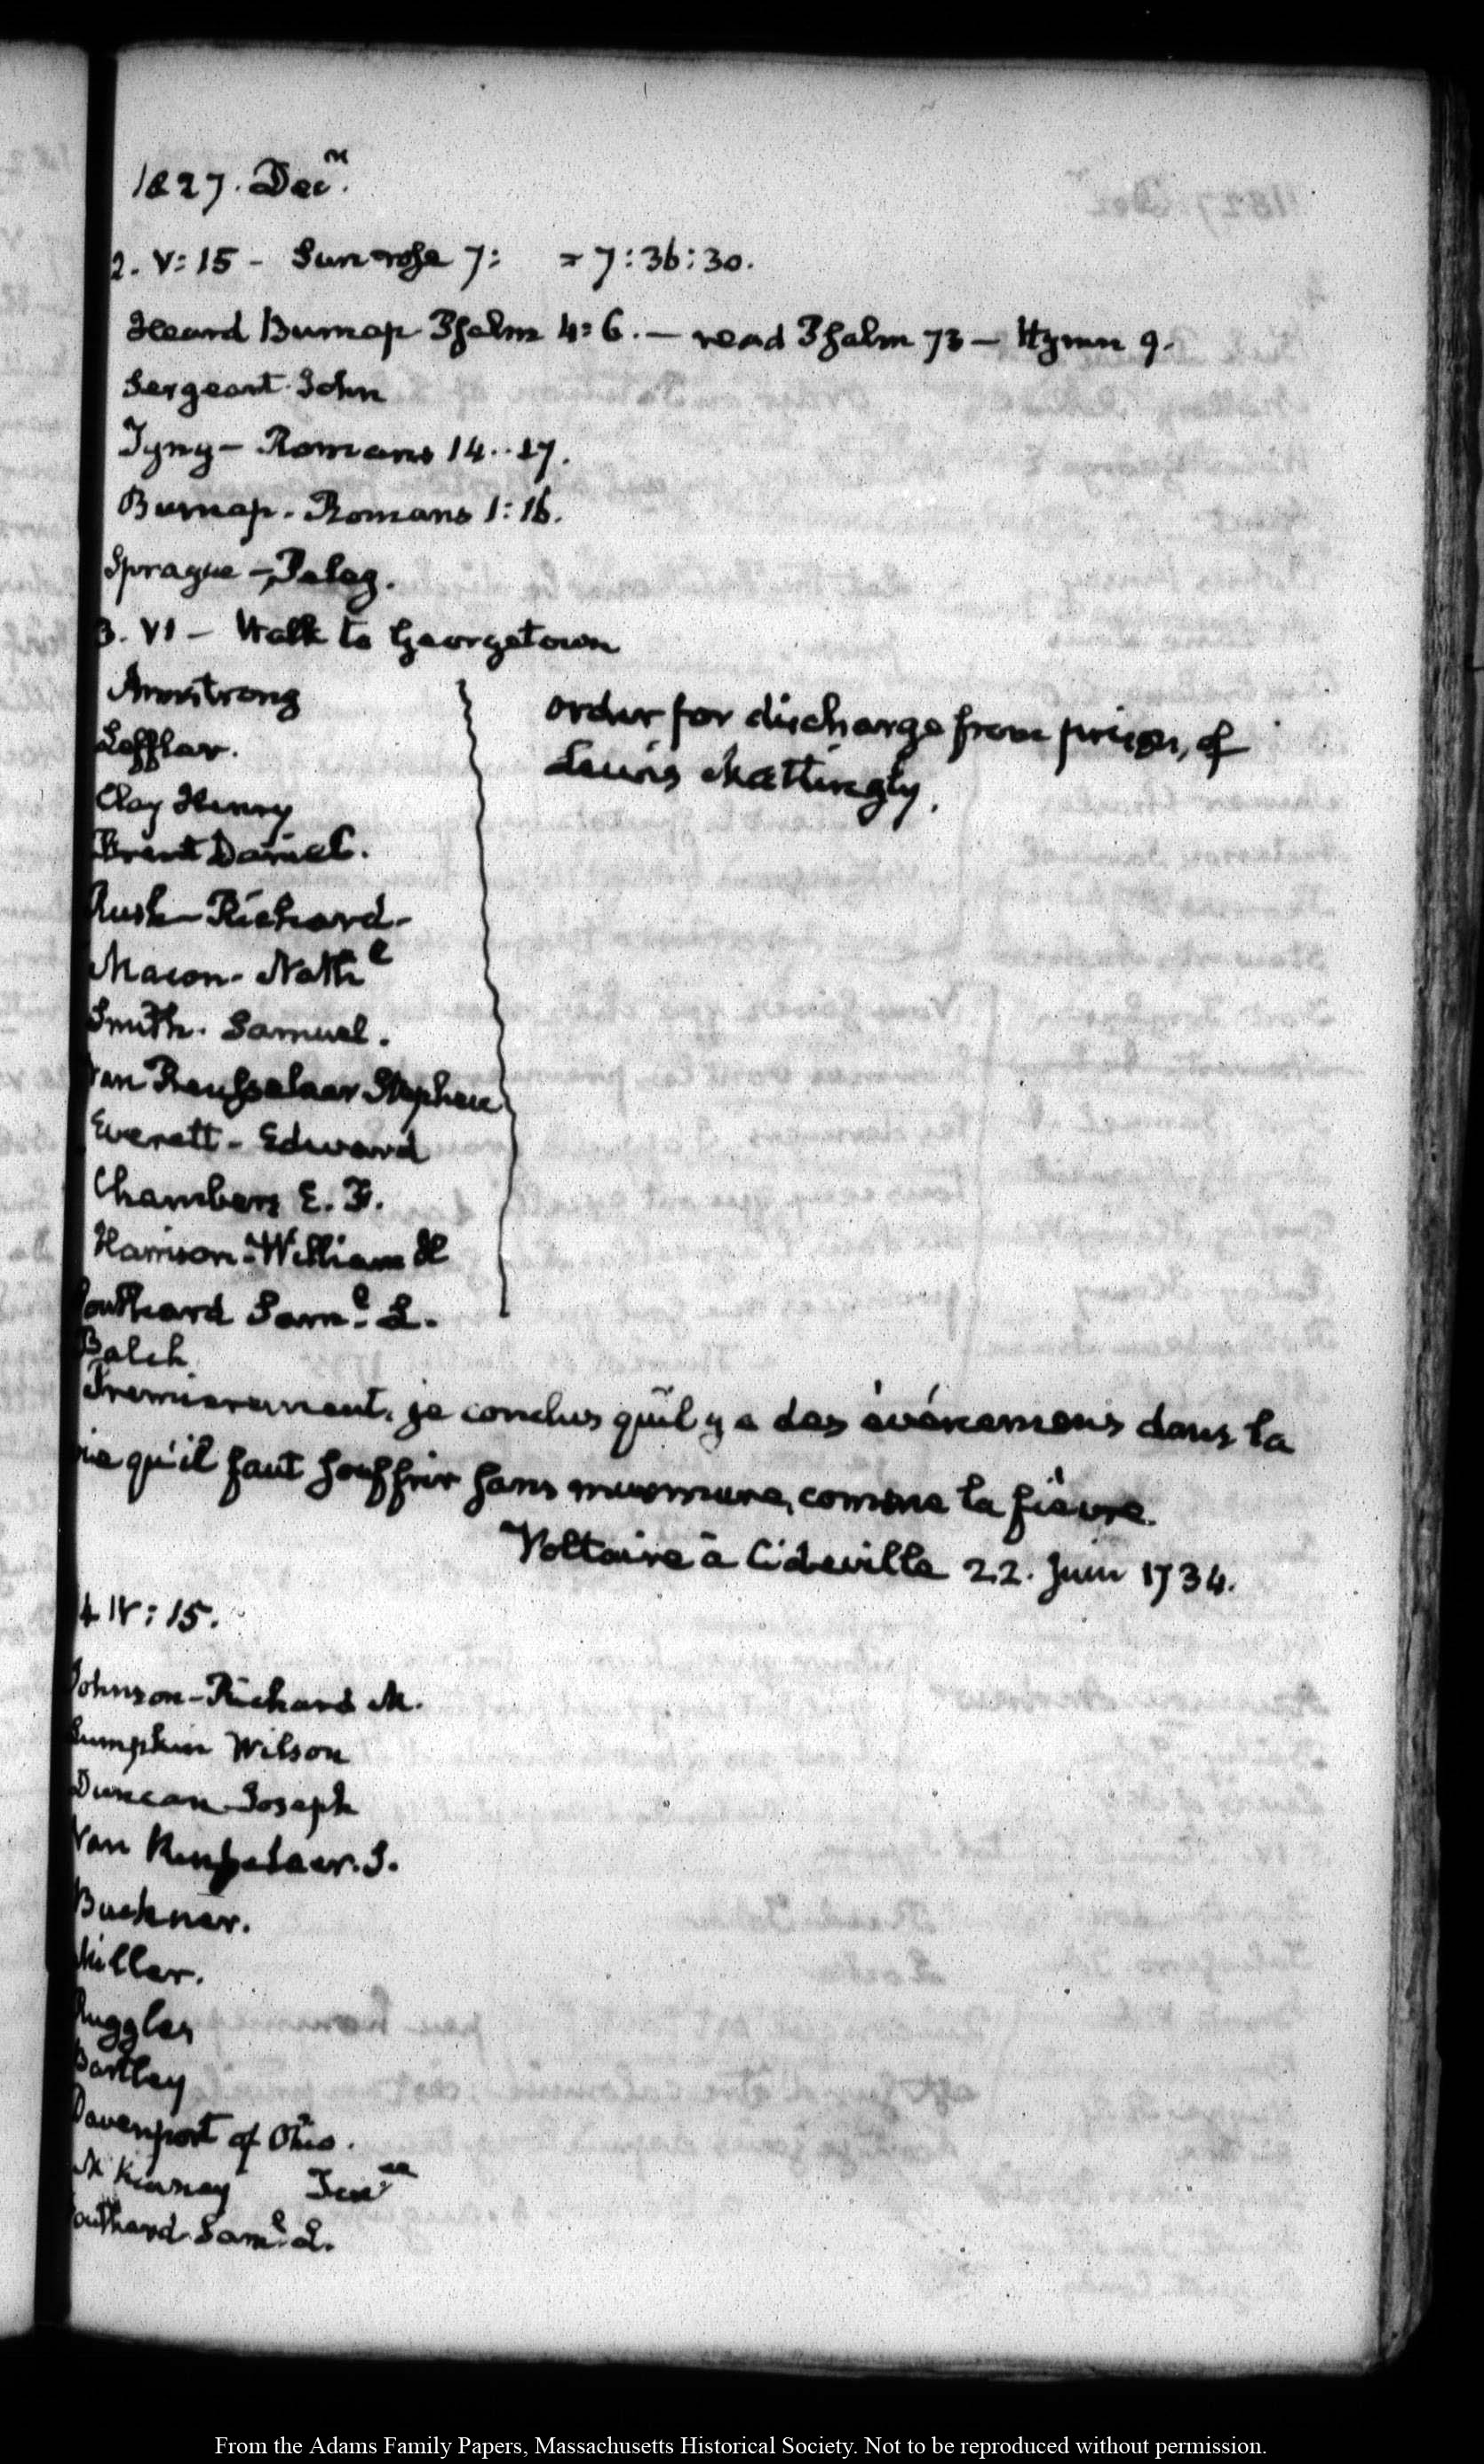 1827. Dec.r
2. V:15 - Sun rose 7: = 7:36:30.
Heard Burnap Psalm 4:6. — read Psalm 73 — Hymn 9.
Sergeant John
Tyng — Romans 14..17.
Burnap. Romans 1:16.
Sprague — Peleg.
3. VI — Walk to Georgetown
Armstrong
Leffler.
Clay Henry
Brent Daniel.
Rush — Richard.
Macon. Nath.l
Smith. Samuel.
Van Rensselaer Stephen
Everett — Edward
Chambers E. F.
Harrison. William H
Southard Sam.l L.
order for discharge from prison, of
Lewis Mattingly.
Balch
Premierement, je conclus qu'il y a des évènemens dans la
vie qu'il faut souffrir sans murmure, comme la fièvre.
Voltaire à Cideville 22. Juin 1734.
4 IV:15.
Johnson — Richard M.
Lumpkin Wilson
Duncan Joseph
Van Rensselaer. S.
Buckner.
Miller.
Ruggles
Bartley
Davenport of Ohio.
McKinney
Southard Sam.l L.
From the Adams Family Papers, Massachusetts Historical Society. Not to be reproduced without permission.